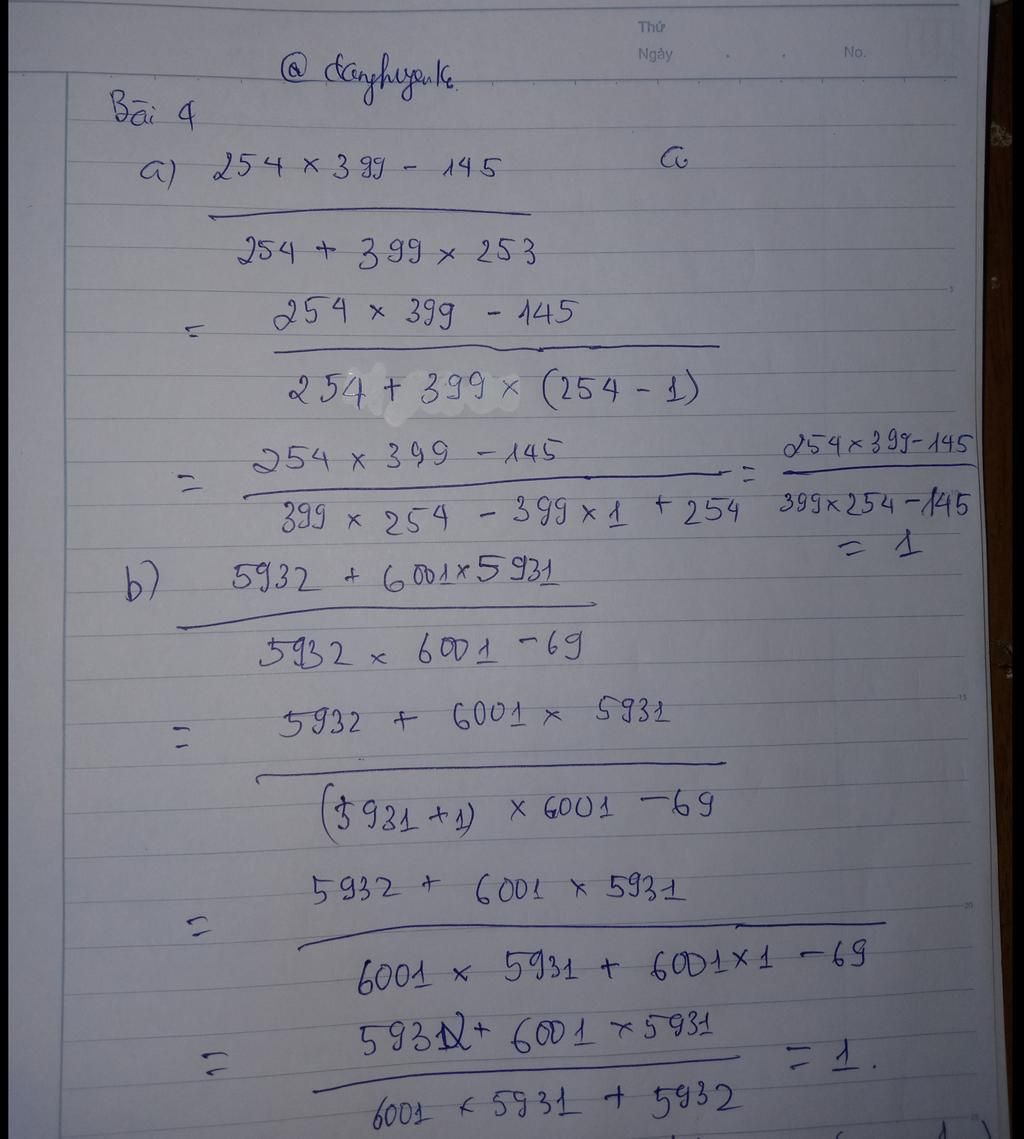 Thứ
Ngày . . No.
@ danghuyenke
Bài 4
a) 254 × 399 - 145 a
254 + 399 × 253
= 254 × 399 - 145
254 + 399 × (254 - 1)
= 254 × 399 - 145 = 254 × 399 - 145
399 × 254 - 399 × 1 + 254 399 × 254 - 145
= 1
b) 5932 + 6001 × 5931
5932 × 6001 - 69
= 5932 + 6001 × 5931
(5931 + 1) × 6001 - 69
= 5932 + 6001 × 5931
6001 × 5931 + 6001 × 1 - 69
= 5932 + 6001 × 5931 = 1.
6001 × 5931 + 5932